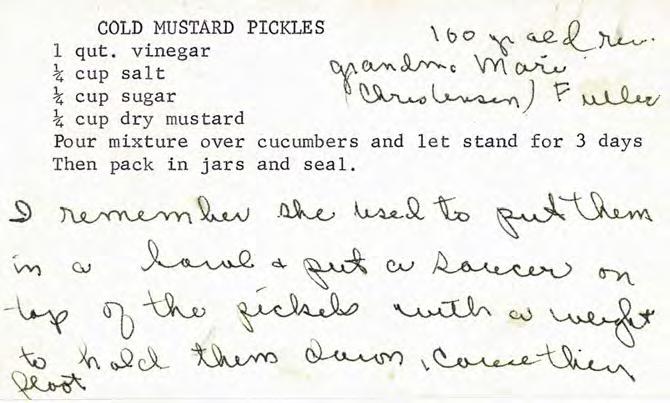 COLD MUSTARD PICKLES
160 yr old rec.
grandma Marie
(Christensen) Fuller
1 qut. vinegar
¼ cup salt
¼ cup sugar
¼ cup dry mustard
Pour mixture over cucumbers and let stand for 3 days
Then pack in jars and seal.
I remember she used to put them
in a bowl & put a saucer on
top of the pickels with a weight
to hold them down, cause they
float